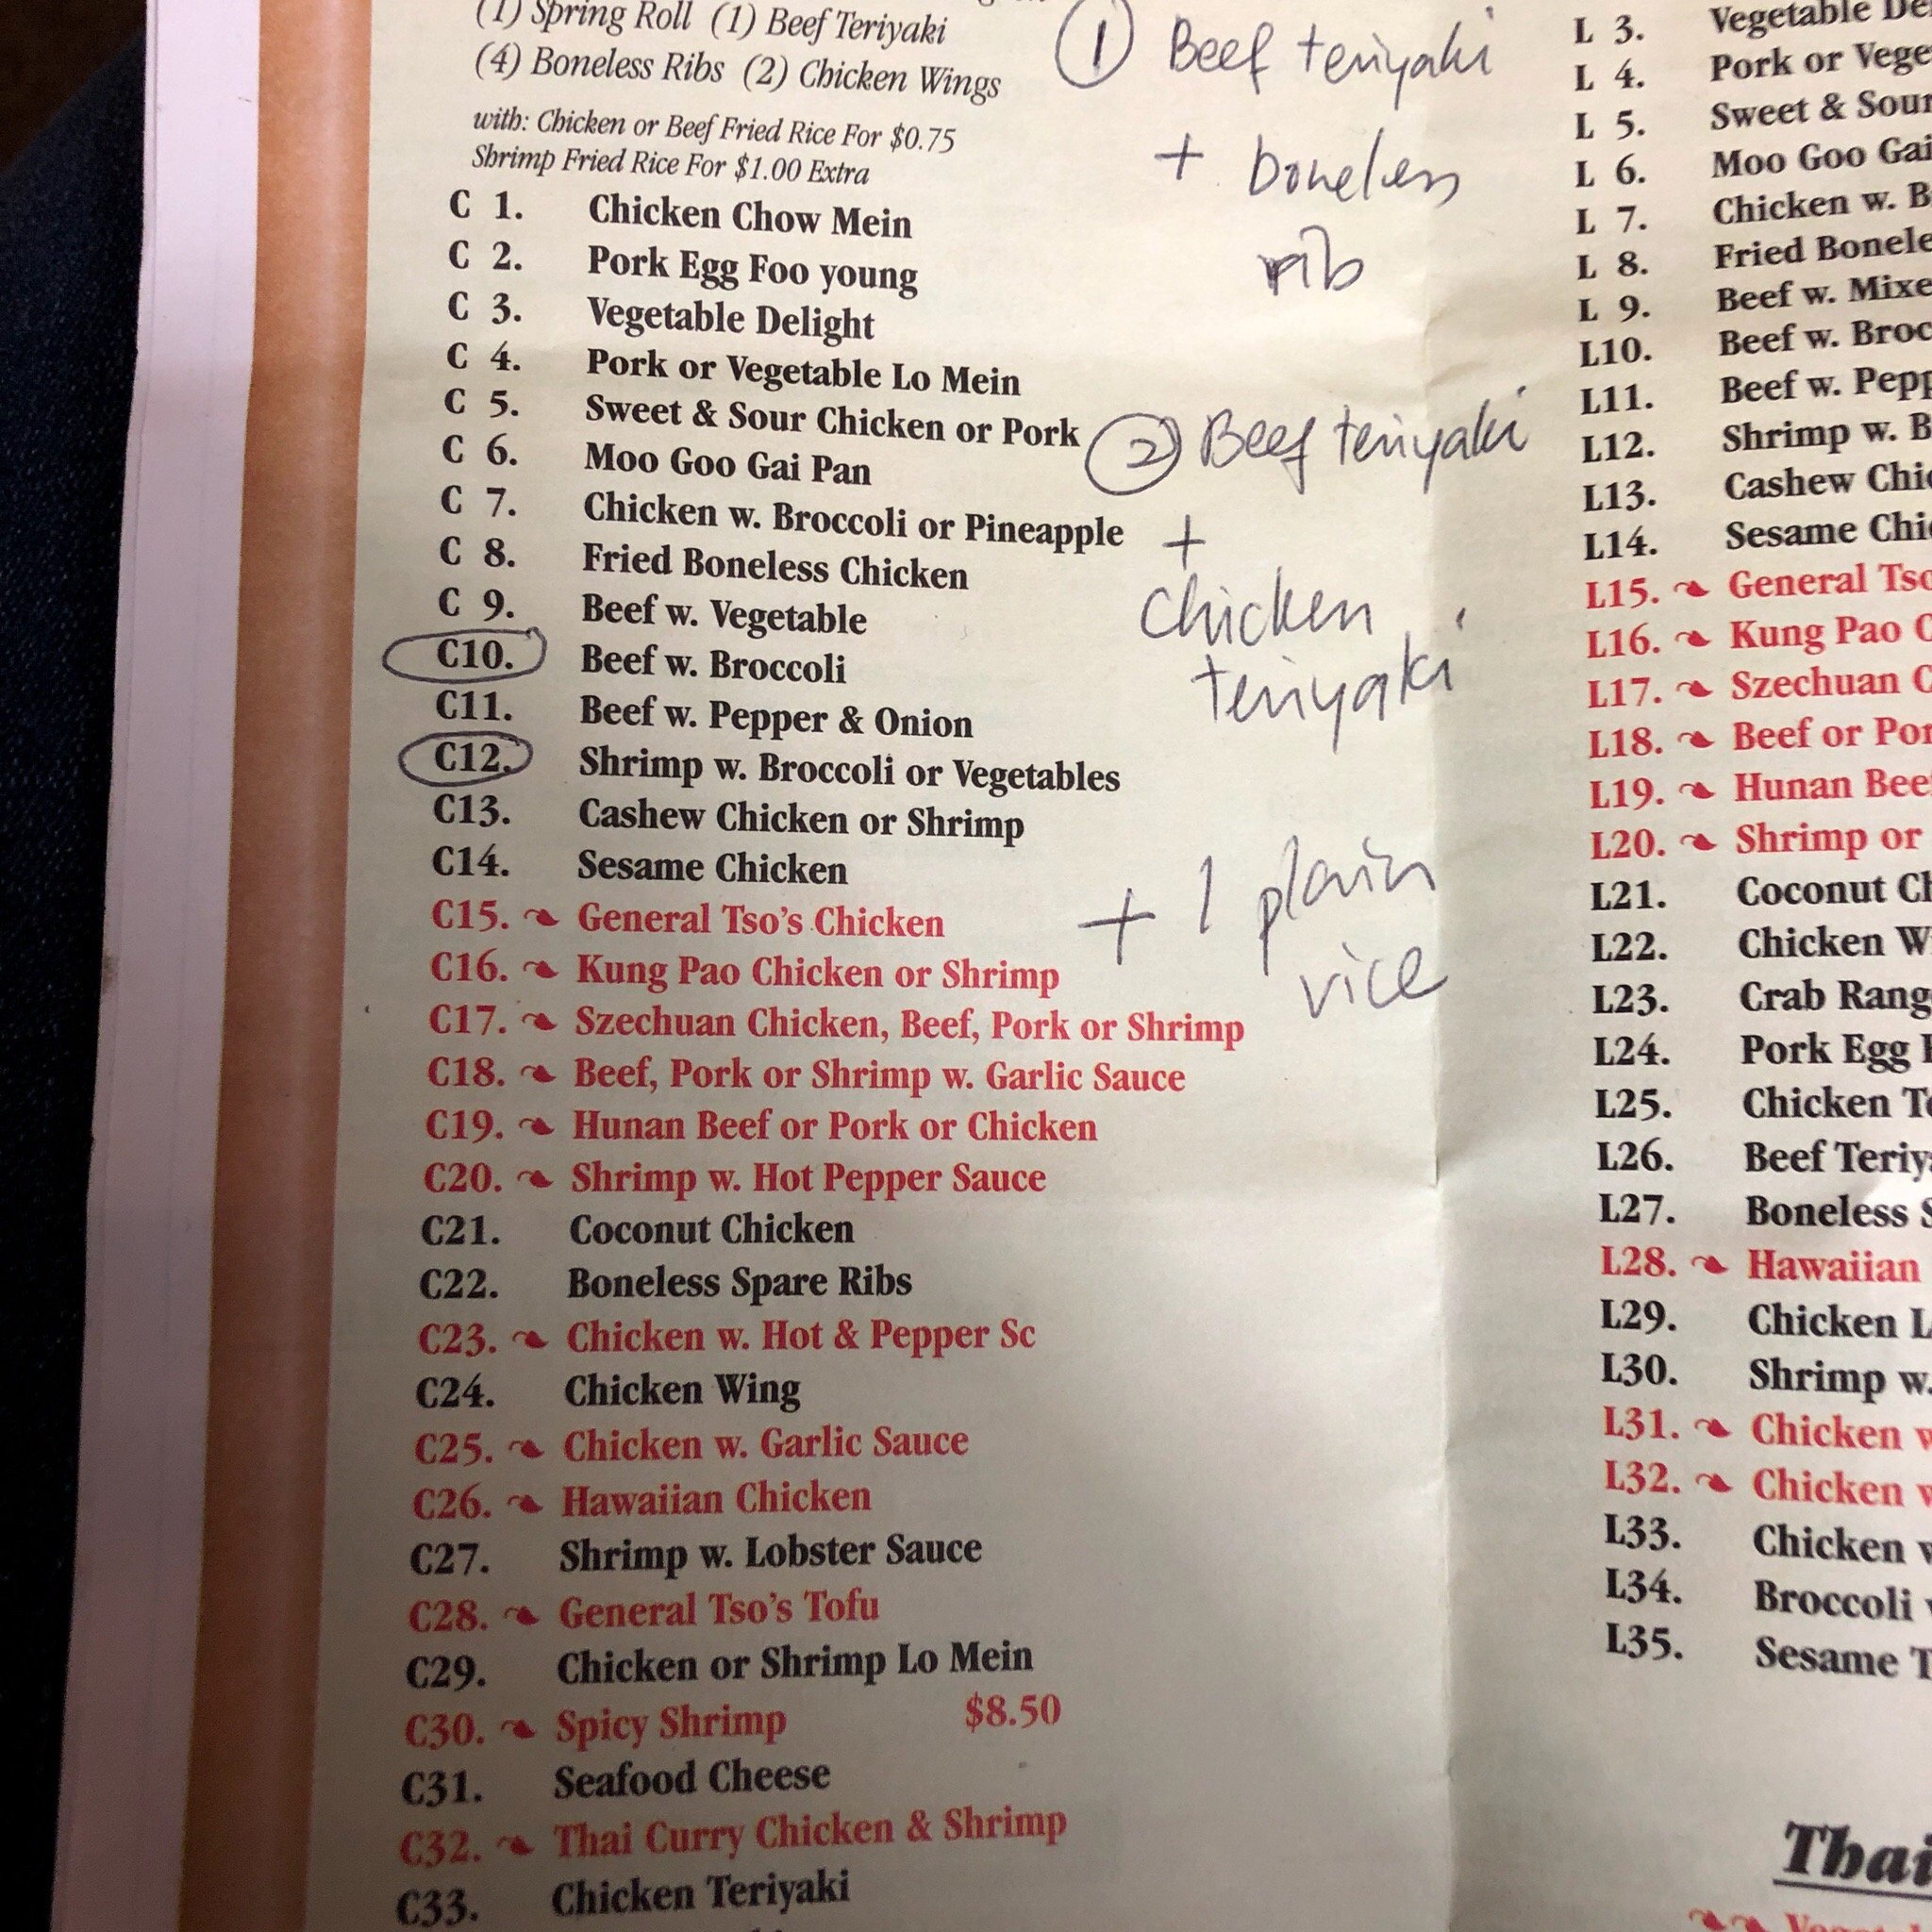 (1) Spring Roll (1) Beef Teriyaki
(4) Boneless Ribs (2) Chicken Wings
with: Chicken or Beef Fried Rice For $0.75
Shrimp Fried Rice For $1.00 Extra
C 1. Chicken Chow Mein
C 2. Pork Egg Foo young
C 3. Vegetable Delight
C 4. Pork or Vegetable Lo Mein
C 5. Sweet & Sour Chicken or Pork
C 6. Moo Goo Gai Pan
C 7. Chicken w. Broccoli or Pineapple
C 8. Fried Boneless Chicken
C 9. Beef w. Vegetable
C10. Beef w. Broccoli
C11. Beef w. Pepper & Onion
C12. Shrimp w. Broccoli or Vegetables
C13. Cashew Chicken or Shrimp
C14. Sesame Chicken
C15. General Tso's Chicken
C16. Kung Pao Chicken or Shrimp
C17. Szechuan Chicken, Beef, Pork or Shrimp
C18. Beef, Pork or Shrimp w. Garlic Sauce
C19. Hunan Beef or Pork or Chicken
C20. Shrimp w. Hot Pepper Sauce
C21. Coconut Chicken
C22. Boneless Spare Ribs
C23. Chicken w. Hot & Pepper Sc
C24. Chicken Wing
C25. Chicken w. Garlic Sauce
C26. Hawaiian Chicken
C27. Shrimp w. Lobster Sauce
C28. General Tso's Tofu
C29. Chicken or Shrimp Lo Mein
C30. Spicy Shrimp $8.50
C31. Seafood Cheese
C32. Thai Curry Chicken & Shrimp
C33. Chicken Teriyaki
1 Beef teriyaki
+ boneless
rib
2 Beef teriyaki
+
chicken
teriyaki
+ 1 plain
rice
L 3. Vegetable De
L 4. Pork or Vege
L 5. Sweet & Sour
L 6. Moo Goo Gai
L 7. Chicken w. B
L 8. Fried Bonele
L 9. Beef w. Mixe
L10. Beef w. Broc
L11. Beef w. Pepp
L12. Shrimp w. B
L13. Cashew Chic
L14. Sesame Chi
L15. General Tso
L16. Kung Pao C
L17. Szechuan C
L18. Beef or Por
L19. Hunan Bee
L20. Shrimp or
L21. Coconut Ch
L22. Chicken W
L23. Crab Rang
L24. Pork Egg
L25. Chicken Te
L26. Beef Teriy
L27. Boneless S
L28. Hawaiian
L29. Chicken L
L30. Shrimp w.
L31. Chicken w
L32. Chicken w
L33. Chicken w
L34. Broccoli
L35. Sesame T
Thai